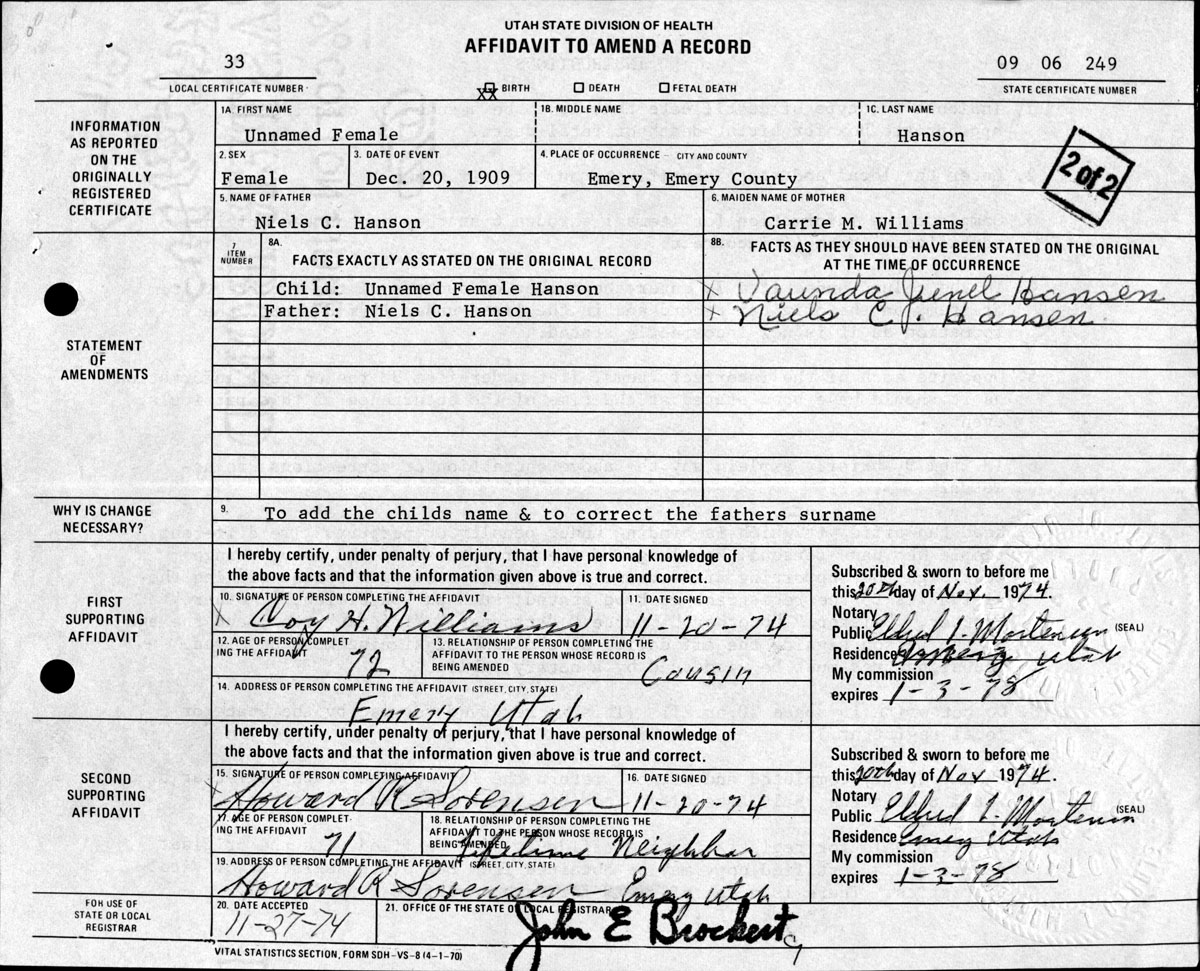 UTAH STATE DIVISION OF HEALTH
AFFIDAVIT TO AMEND A RECORD
33
LOCAL CERTIFICATE NUMBER
XX BIRTH DEATH FETAL DEATH
09 06 249
STATE CERTIFICATE NUMBER
INFORMATION
AS REPORTED
ON THE
ORIGINALLY
REGISTERED
CERTIFICATE
1A. FIRST NAME
Unnamed Female
1B. MIDDLE NAME
1C. LAST NAME
Hanson
2. SEX
Female
3. DATE OF EVENT
Dec. 20, 1909
4. PLACE OF OCCURRENCE - CITY AND COUNTY
Emery, Emery County
2 of 2
5. NAME OF FATHER
Niels C. Hanson
6. MAIDEN NAME OF MOTHER
Carrie M. Williams
STATEMENT
OF
AMENDMENTS
7
ITEM
NUMBER
8A.
FACTS EXACTLY AS STATED ON THE ORIGINAL RECORD
8B.
FACTS AS THEY SHOULD HAVE BEEN STATED ON THE ORIGINAL
AT THE TIME OF OCCURRENCE
Child: Unnamed Female Hanson
X Vaunda Junel Hansen
Father: Niels C. Hanson
X Niels C J. Hansen
WHY IS CHANGE
NECESSARY?
9. To add the childs name & to correct the fathers surname
FIRST
SUPPORTING
AFFIDAVIT
I hereby certify, under penalty of perjury, that I have personal knowledge of
the above facts and that the information given above is true and correct.
10. SIGNATURE OF PERSON COMPLETING THE AFFIDAVIT
X Coy H. Williams
11. DATE SIGNED
11-20-74
12. AGE OF PERSON COMPLET
ING THE AFFIDAVIT
72
13. RELATIONSHIP OF PERSON COMPLETING THE
AFFIDAVIT TO THE PERSON WHOSE RECORD IS
BEING AMENDED
Cousin
14. ADDRESS OF PERSON COMPLETING THE AFFIDAVIT (STREET, CITY, STATE)
Emery Utah
Subscribed & sworn to before me
this 20th day of Nov. 1974.
Notary
Public Eldred I. Mortensen (SEAL)
Residence Utah
My commission
expires 1-3-78
SECOND
SUPPORTING
AFFIDAVIT
I hereby certify, under penalty of perjury, that I have personal knowledge of
the above facts and that the information given above is true and correct.
15. SIGNATURE OF PERSON COMPLETING AFFIDAVIT
X Howard R Sorensen
16. DATE SIGNED
11-20-74
17. AGE OF PERSON COMPLET-
ING THE AFFIDAVIT
71
18. RELATIONSHIP OF PERSON COMPLETING THE
AFFIDAVIT TO THE PERSON WHOSE RECORD IS
BEING AMENDED
Lifetime Neighbar
19. ADDRESS OF PERSON COMPLETING THE AFFIDAVIT (STREET, CITY, STATE)
Howard R Sorensen Emery Utah
Subscribed & sworn to before me
this 20th day of Nov 1974.
Notary
Public Eldred I. Mortensen (SEAL)
Residence Emery Utah
My commission
expires 1-3-78
FOR USE OF
STATE OR LOCAL
REGISTRAR
20. DATE ACCEPTED
11-27-74
21. OFFICE OF THE STATE OR LOCAL REGISTRAR
John E Brockert
VITAL STATISTICS SECTION, FORM SDH-VS-8 (4-1-70)